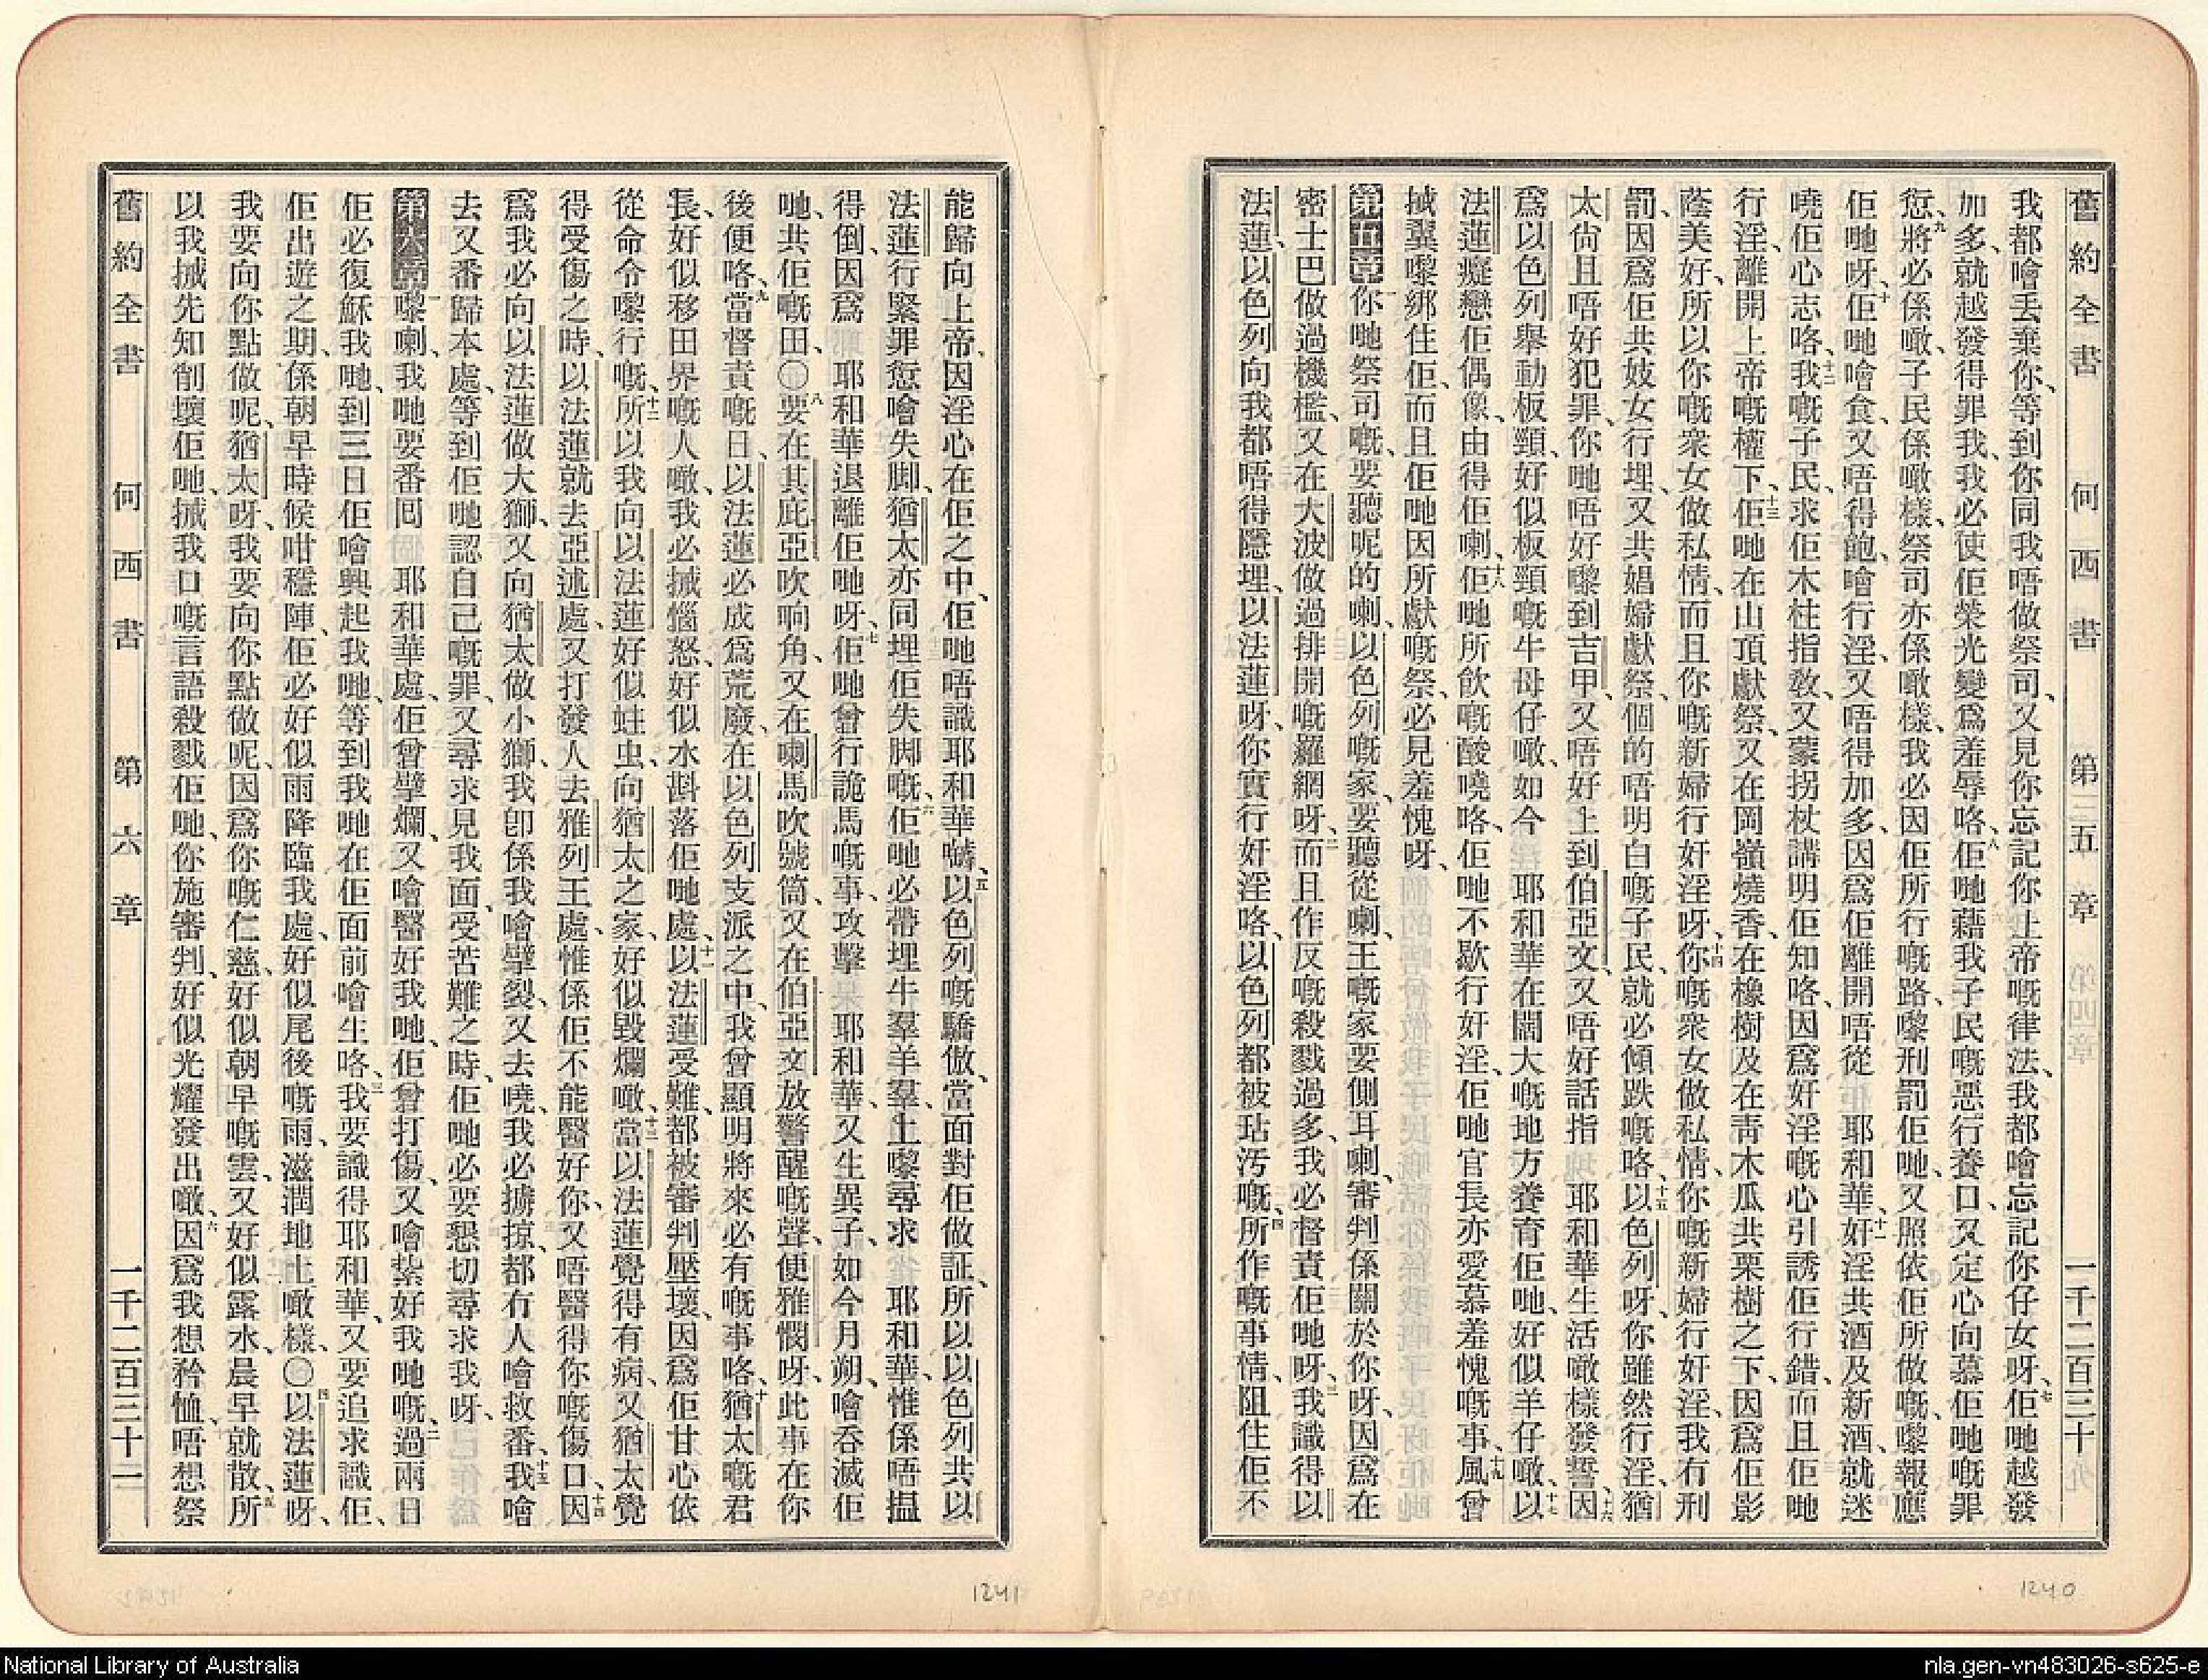 舊約全書　何西書　第五章　一千二百三十
我都噲丟棄你、等到你同我唔做祭司、又見你忘記你上帝嘅律法、我都噲忘記你仔女呀、七佢哋越發
加多、就越發得罪我、我必使佢榮光變爲羞辱咯、八佢哋藉我子民嘅惡行養口、又定心向慕佢哋嘅罪
愆、九將必係噉、子民係噉樣、祭司亦係噉樣、我必因佢所行嘅路、嚟刑罰佢哋、又照依佢所做嘅、嚟報應
佢哋呀、十佢哋噲食、又唔得飽、噲行淫、又唔得加多、因爲佢離開唔從　耶和華、十一奸淫共酒及新酒、就迷
嘵佢心志咯、十二我嘅子民、求佢木柱指教、又蒙拐杖講明佢知咯、因爲奸淫嘅心引誘佢行錯、而且佢哋
行淫、離開上帝嘅權下、十三佢哋在山頂獻祭、又在岡嶺燒香、在橡樹及在靑木瓜共栗樹之下、因爲佢影
蔭美好、所以你嘅衆女做私情、而且你嘅新婦行奸淫呀、十四你嘅衆女做私情、你嘅新婦行奸淫、我冇刑
罰、因爲佢共妓女行埋、又共娼婦獻祭、個的唔明白嘅子民、就必傾跌嘅咯、十五以色列呀、你雖然行淫、猶
太尙且唔好犯罪、你哋唔好嚟到吉甲、又唔好上到伯亞文、又唔好話指　耶和華生活噉樣發誓、十六因
爲以色列舉動板頸、好似板頸嘅牛母仔噉、如今　耶和華在闊大嘅地方養育佢哋、好似羊仔噉、十七以
法蓮癡戀佢偶像、由得佢喇、十八佢哋所飲嘅酸嘵咯、佢哋不歇行奸淫、佢哋官長亦愛慕羞愧嘅事、十九風曾
搣翼嚟綁住佢、而且佢哋因所獻嘅祭、必見羞愧呀、
第五章一你哋祭司嘅、要聽呢的喇、以色列嘅家、要聽從喇、王嘅家要側耳喇、審判係關於你呀、因爲在
密士巴做過機檻、又在大波做過排開嘅羅網呀、二而且作反嘅殺戮過多、我必督責佢哋呀、三我識得以
法蓮、以色列向我都唔得隱埋、以法蓮呀、你實行奸淫咯、以色列都被玷汚嘅、四所作嘅事情、阻住佢不
1240
能歸向上帝、因淫心在佢之中、佢哋唔識耶和華嚹、五以色列嘅驕傲、當面對佢做証、所以以色列共以
法蓮行緊罪愆噲失脚、猶太亦同埋佢失脚嘅、六佢哋必帶埋牛羣羊羣上嚟尋求　耶和華、惟係唔搵
得倒、因爲　耶和華退離佢哋呀、七佢哋曾行詭馬嘅事、攻擊　耶和華、又生異子、如今月朔、噲吞滅佢
哋、共佢嘅田、〇八要在其庇亞吹响角、又在喇馬吹號筒、又在伯亞文放警醒嘅聲、便雅憫呀、此事在你
後便咯、九當督責嘅日、以法蓮必成爲荒廢、在以色列支派之中、我曾顯明將來必有嘅事咯、十猶太嘅君
長、好似移田界嘅人噉、我必搣惱怒、好似水斟落佢哋處、十一以法蓮受難、都被審判壓壞、因爲佢甘心依
從命令嚟行嘅、十二所以我向以法蓮好似蛀虫、向猶太之家、好似毀爛噉、十三當以法蓮覺得有病、又猶太覺
得受傷之時、以法蓮就去亞述處、又打發人去雅列王處、惟係佢不能醫好你、又唔醫得你嘅傷口、十四因
爲我必向以法蓮做大獅、又向猶太做小獅、我卽係我噲擘裂、又去嘵、我必擄掠、都冇人噲救番、十五我噲
去又番歸本處、等到佢哋認自己嘅罪、又尋求見我面、受苦難之時、佢哋必要懇切尋求我呀、
第六章一嚟喇、我哋要番囘　耶和華處、佢曾擘爛、又噲醫好我哋、佢曾打傷、又噲紮好我哋嘅、二過兩日
佢必復穌我哋、到三日佢噲興起我哋、等到我哋在佢面前噲生咯、三我要識得耶和華、又要追求識佢、
佢出遊之期、係朝早時候咁穩陣、佢必好似雨降臨我處、好似尾後嘅雨、滋潤地土噉樣、〇四以法蓮呀、
我要向你點做呢、猶太呀、我要向你點做呢、因爲你嘅仁慈、好似朝早嘅雲、又好似露水、晨早就散、五所
以我搣先知削壞佢哋、搣我口嘅言語殺戮佢哋、你施審判、好似光耀發出噉、六因爲我想矜恤、唔想祭
舊約全書　何西書　第六章　一千二百三十一
1241
National Library of Australia
nla.gen-vn483026-s625-e